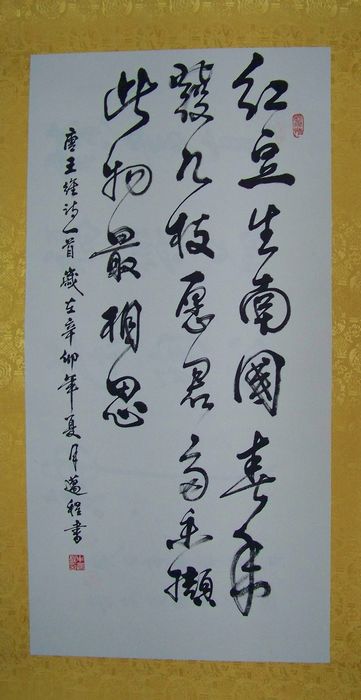 红豆生南國春来
發几枝愿君多采擷
此物最相思
唐王維诗一首歲在辛卯年夏月邁程書